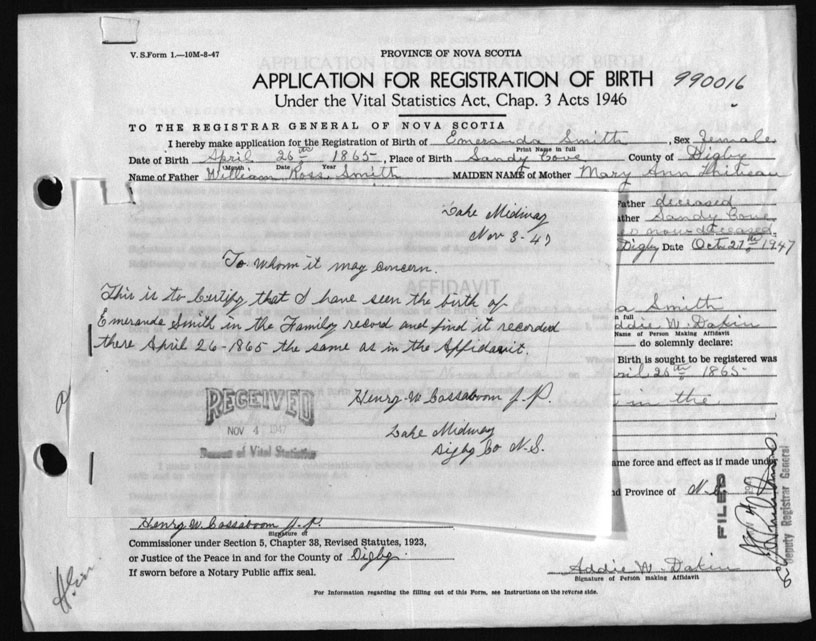 V. S. Form 1.—10M-8-47
PROVINCE OF NOVA SCOTIA
APPLICATION FOR REGISTRATION OF BIRTH 990016
Under the Vital Statistics Act, Chap. 3 Acts 1946
TO THE REGISTRAR GENERAL OF NOVA SCOTIA
I hereby make application for the Registration of Birth of Emeranda Smith, Sex Female
Print Name in full
Date of Birth April 26th 1865, Place of Birth Sandy Cove County of Digby
(Month) Date Year
Name of Father William Ross Smith MAIDEN NAME of Mother Mary Ann
Father deceased
ather Sandy Cove
now deceased
Digby Date Oct. 27th 1947
Lake Midway
Nov 3-47
To whom it may concern.
This is to Certify that I have seen the birth of
Emeranda Smith in the Family record and find it recorded
there April 26-1865 the same as in the Affidavit.
Henry W Cossaboom J.P.
Lake Midway
Digby Co N.S.
RECEIVED
NOV 4 1947
Bureau of Vital Statistics
AFFIDAVIT
a Smith
in full
ddie W. Dakin
Name of Person Making Affidavit
do solemnly declare:
Birth is sought to be registered was
pril 26th 1865
in the
ame force and effect as if made under
nd Province of N.S.
FILED
Deputy Registrar General
Henry W. Cossaboom J.P.
Signature of
Commissioner under Section 5, Chapter 38, Revised Statutes, 1923,
or Justice of the Peace in and for the County of Digby
If sworn before a Notary Public affix seal.
Addie W. Dakin
Signature of Person making Affidavit
For Information regarding the filling out of this Form, see Instructions on the reverse side.